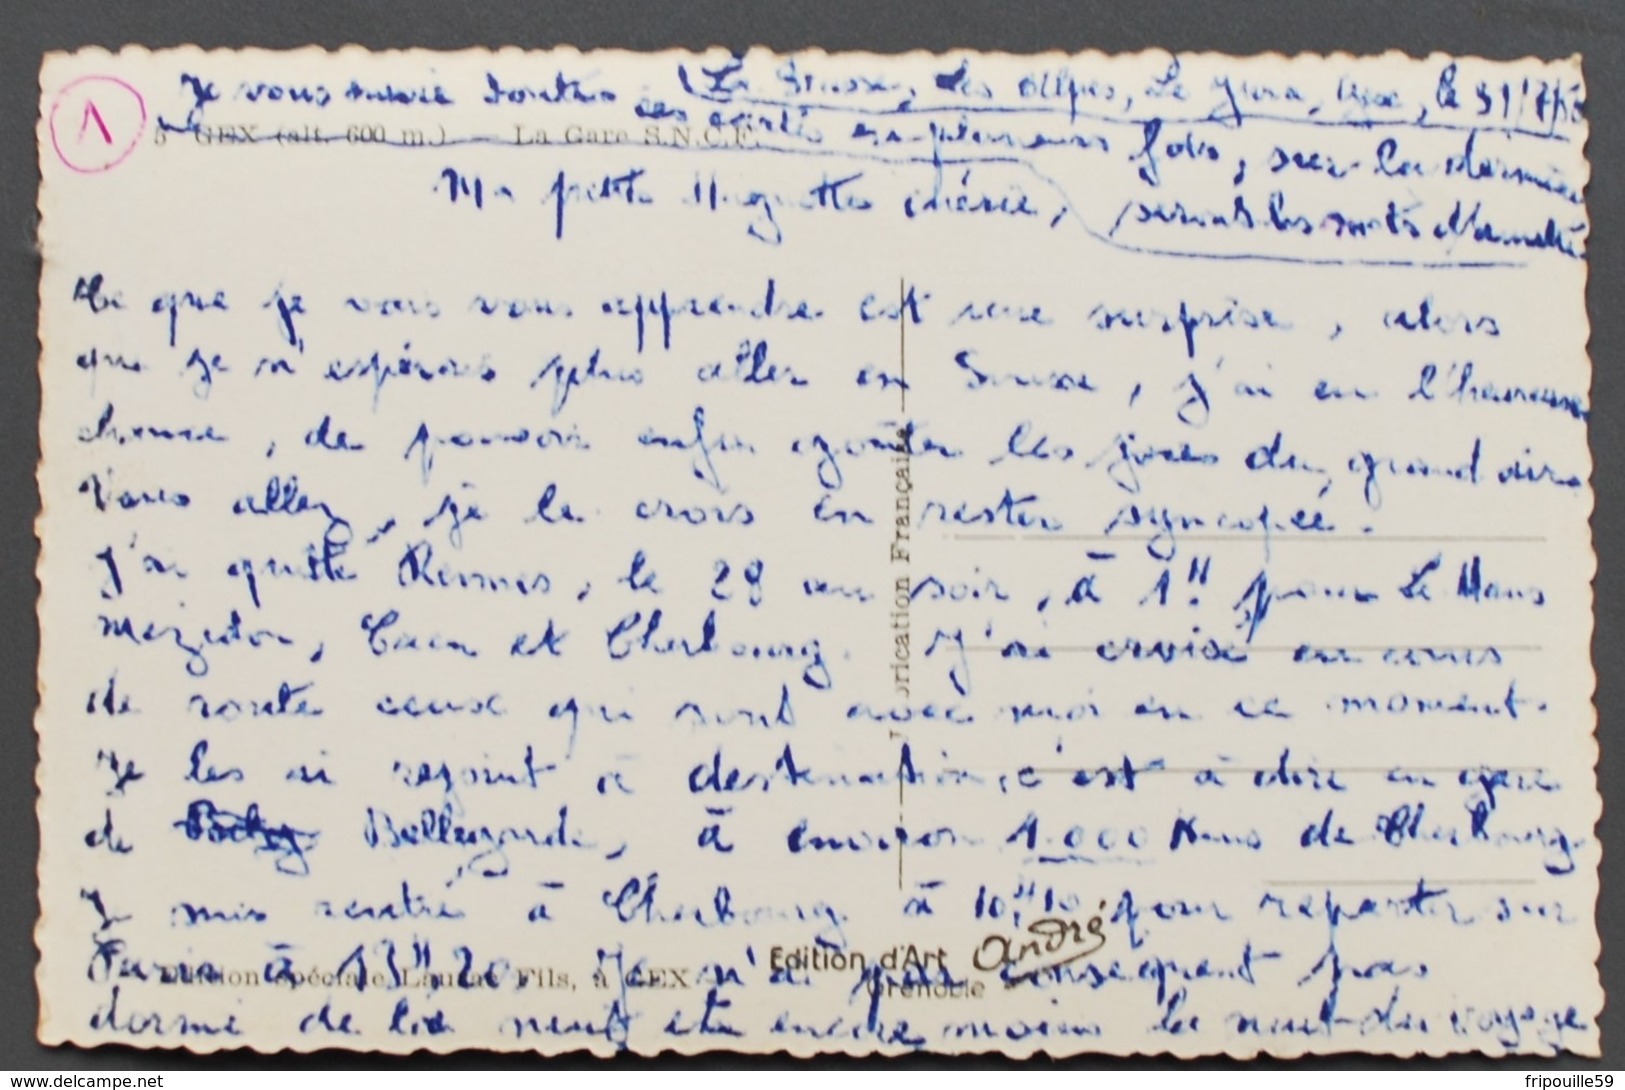 1
Je vous envoie toutes
La Suisse, les Alpes, Le Jura, Gex, le 31/7/5
5 GEX (alt. 600 m.) — La Gare S.N.C.F.
ces cartes en plusieurs fois, sur la dernière
seront les mots d'amitié
Ma petite Huguette chérie,
Ce que je vais vous apprendre est une surprise, alors
que je n'espérais plus aller en Suisse, j'ai eu l'heureuse
chance, de pouvoir enfin goûter les joies du grand air.
Vous allez, je le crois en rester syncopée.
J'ai quitté Rennes, le 29 au soir, à 1H pour Le Mans
Mezidon, Caen et Cherbourg. J'ai croisé en cours
de route ceux qui sont avec moi en ce moment.
Je les ai rejoint à destination, c'est à dire en gare
de Bellegarde, à environ 1.000 Kms de Cherbourg.
Je suis rentré à Cherbourg à 10H10 pour repartir sur
Paris à 13H20. Je n'ai par conséquent pas
dormi de la nuit et encore moins la nuit du voyage
Fabrication Française
Edition d'Art André
Grenoble
Edition Spéciale Fils, à GEX
delcampe.net
fripouille59